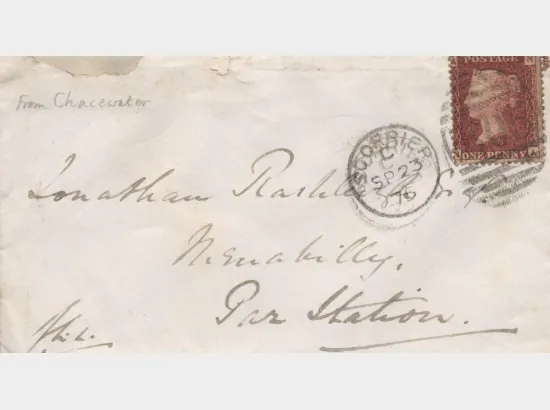 POSTAGE
ONE PENNY
From Chacewater
SCORRIER
C
SP 23
76
Jonathan Rashleigh Esq
Menabilly,
Par Station.